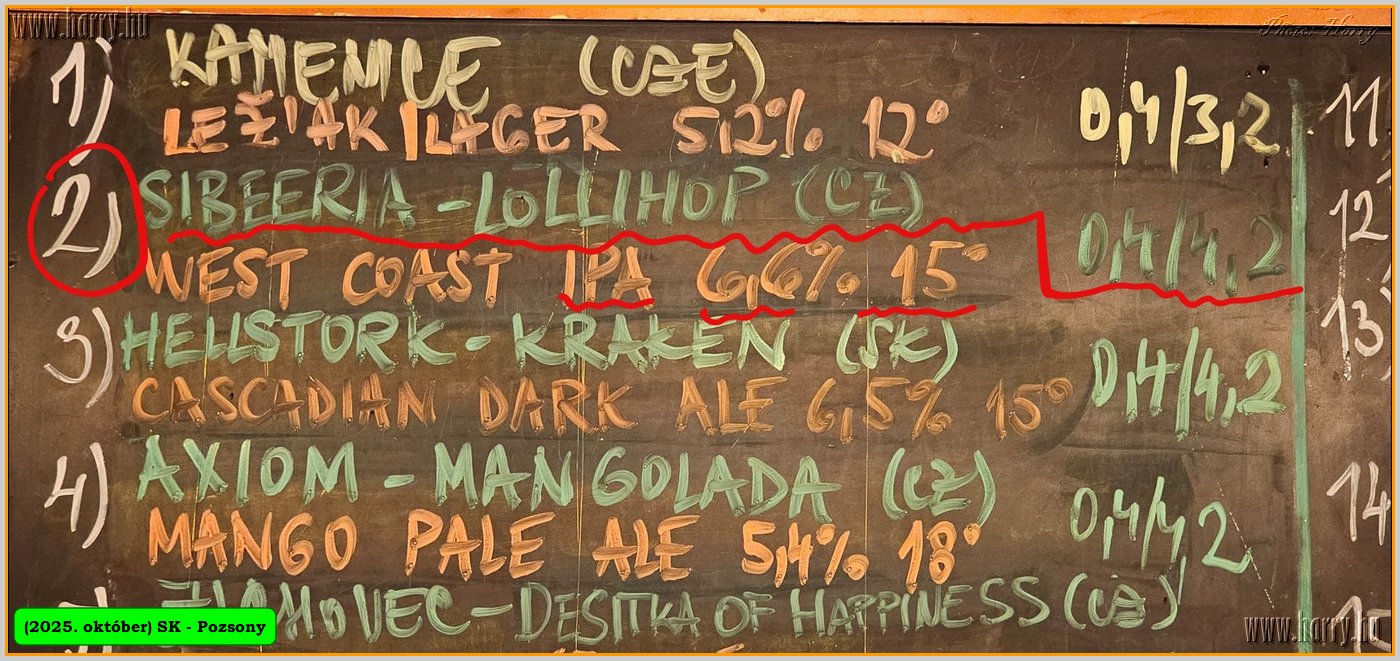 www.harry.hu
Photo: Harry
1) KAMENICE (CZE)
LEŽIAK|LAGER 5,2% 12°
0,4/3,2
2) SIBEERIA - LOLLIHOP (CZ)
WEST COAST IPA 6,6% 15°
0,4/4,2
3) HELLSTORK - KRAKEN (SK)
CASCADIAN DARK ALE 6,5% 15°
0,4/4,2
4) AXIOM - MANGOLADA (CZ)
MANGO PALE ALE 5,4% 18°
0,4/4,2
- DESITKA OF HAPPINESS (CZ)
11
12
13
14
(2025. október) SK - Pozsony
www.harry.hu